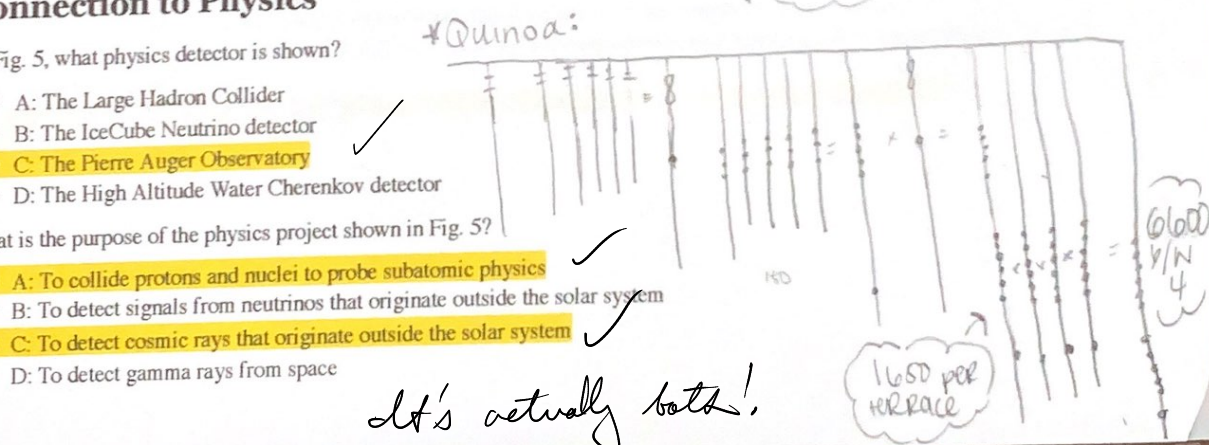 onnection to Physics
ig. 5, what physics detector is shown?
A: The Large Hadron Collider
B: The IceCube Neutrino detector
C: The Pierre Auger Observatory
D: The High Altitude Water Cherenkov detector
at is the purpose of the physics project shown in Fig. 5?
A: To collide protons and nuclei to probe subatomic physics
B: To detect signals from neutrinos that originate outside the solar system
C: To detect cosmic rays that originate outside the solar system
D: To detect gamma rays from space
It's actually both!
*Quinoa:
1650 per
terrace
6600
4